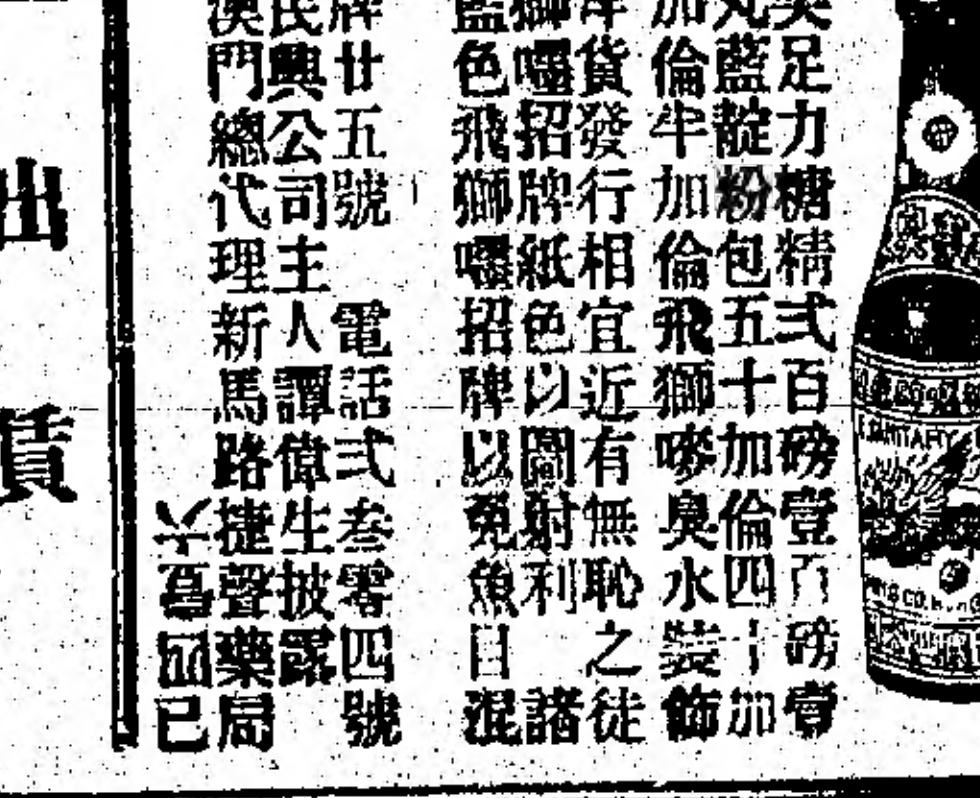 足力糖精弍百磅壹百磅壹
丸藍靛粉包五十加倫四十加
加倫半加倫飛獅嘜臭水裝飾
岸貨發行相宜近有無恥之徒
獅嘜招牌紙色以圖射利 諸
藍色飛獅嘜招牌以免魚目混
牌廿五號 電話弍叁零四號
民興公司主人譚偉生披露
澳門總代理新馬路捷聲藥局
已
出
賃
SANITARY
CO.